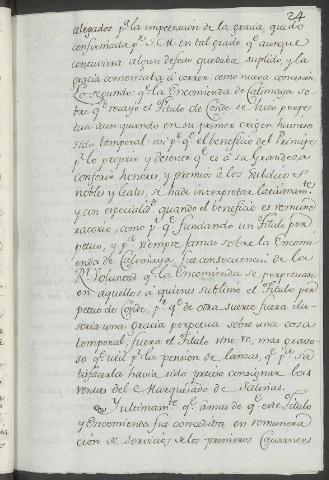 24
alegados pª la impetracion de la gracia, quedó
confirmada pr S.M. en tal grado qe aunque
concuriera algun defecto quedaba suplido, y la
gracia comenzaba á correr, como nueva concesion.
Lo segundo: qe la Encomienda de Calimaya so-
bre qe recayó el Titulo de Conde, se hizo perpe-
tua aun quando en su primer origen huviese
sido temporal: asi pr qe el beneficio del Principe
pr lo proprio y decoroso qe es á su Grandeza
conferir honores, y premios á los Subditos
nobles y leales, se hade interpretar latisimamte
y con especialidd quando el beneficio es remune-
ratorio, como pr qe fundando un Titulo per-
petuo, y pª siempre jamas sobre la Encomi-
enda de Calimaya, fue consecuencia de la
Rl Voluntad qe la Encomienda se perpetuase
en aquellos á quienes sublimó el Titulo per-
petuo de Conde; pr qe de otra suerte fuera ilu-
soria una gracia perpetua sobre una cosa
temporal, fuera el Titulo sine re, mas gravo-
so qe util pr la pension de lanzas, qe pª sa-
tisfacerla havia sido preciso consignar las
rentas del Marquesado de Salinas.
Y ultimamte qe ámas de qe este Titulo
y Encomienda fue concedida en remunera
cion de servicios de los primeros Causantes